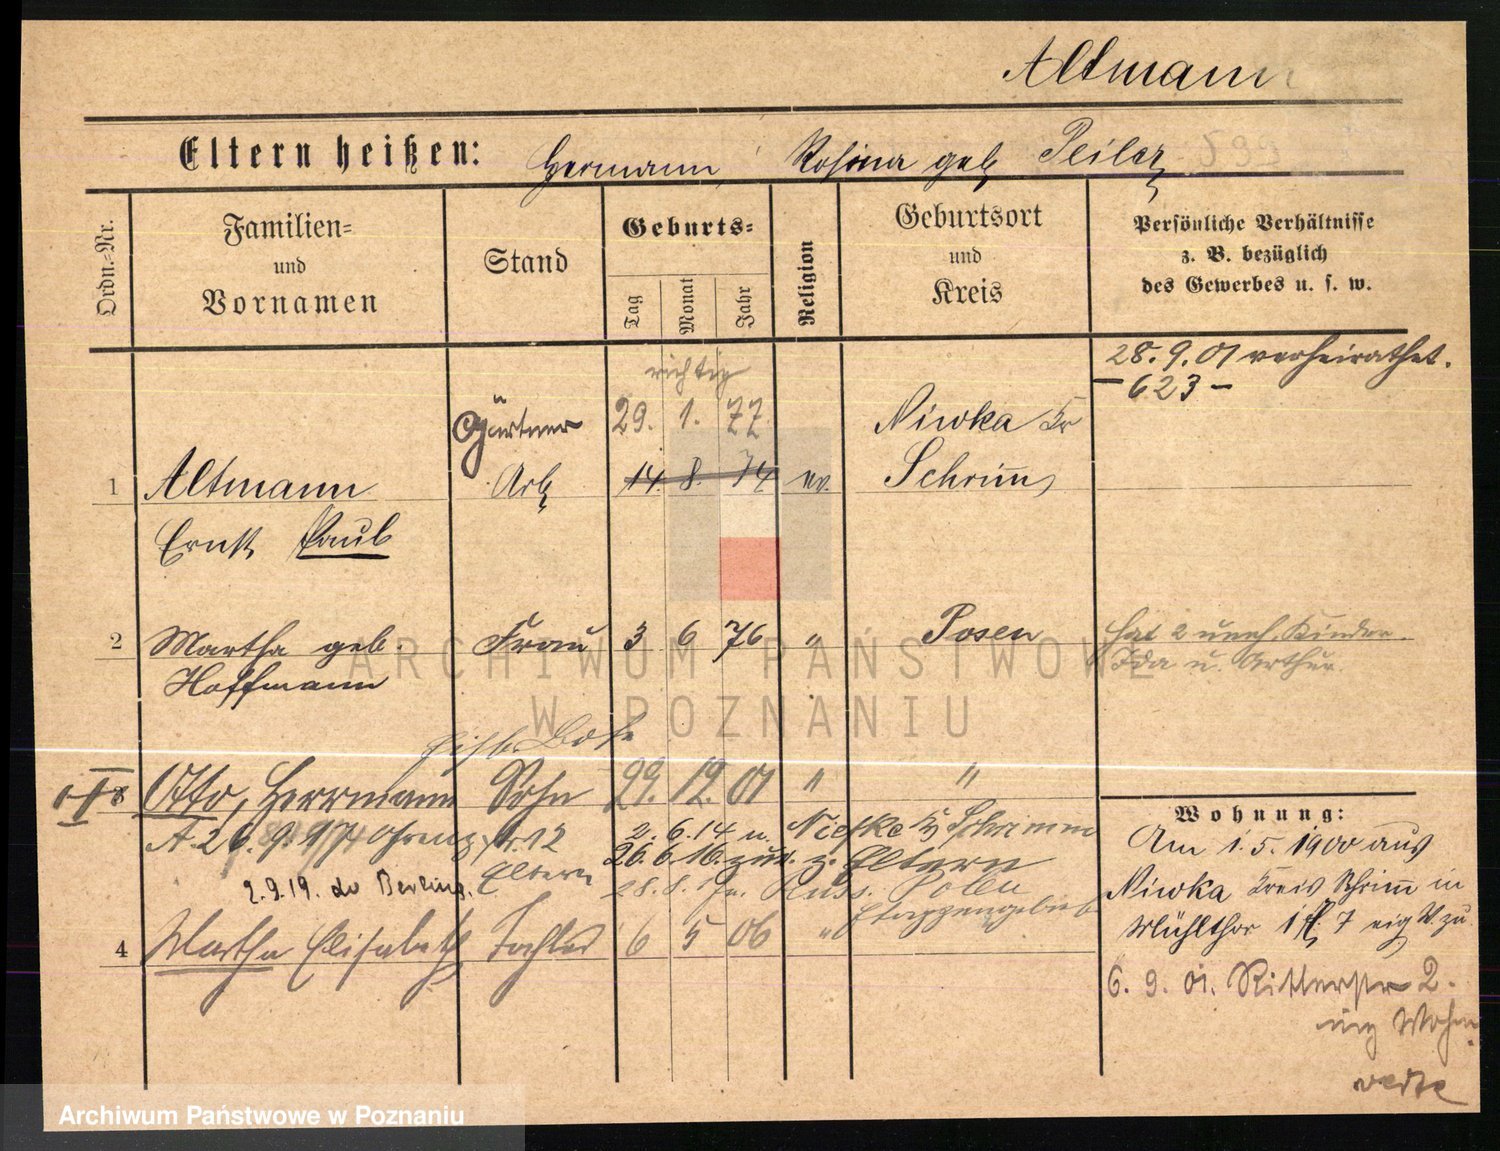 Altmann
Eltern heißen: Hermann, Rosina geb Peiler
Ordn.=Nr.
Familien=
und
Vornamen
Stand
Geburts=
Tag
Monat
Jahr
Religion
Geburtsort
und
Kreis
Persönliche Verhältnisse
z. B. bezüglich
des Gewerbes u. s. w.
28. 9. 01 verheirathet.
– 623 –
richtig
Gärtner 29. 1. 77 Niwka Kr
1 Altmann Arb 14. 8. 74 ev. Schrimm
Ernst Paul
2 Martha geb. Frau 3 6 76 " Posen
Hoffmann
hat 2 uneh. Kinder
Ida u. Arthur.
Otto, Herrmann Sohn 29. 12. 01 " "
A. 26. 9. 17 12 2. 6. 14 u. Schrimm
26. 6. 16. zur. z. Eltern
2. 9. 19. do Berlin Eltern 28. 8. In Russ. Polen
Etappengebiet
4 Martha Elisabeth Tochter 6 5 06 "
Wohnung:
Am 1. 5. 1900 aus
Niwka Kreis Schrimm in
Mühlthor 7 zu
6. 9. 01. Ritterstr 2.
Wohn
verte
ARCHIWUM PAŃSTWOWE
W POZNANIU
Archiwum Państwowe w Poznaniu